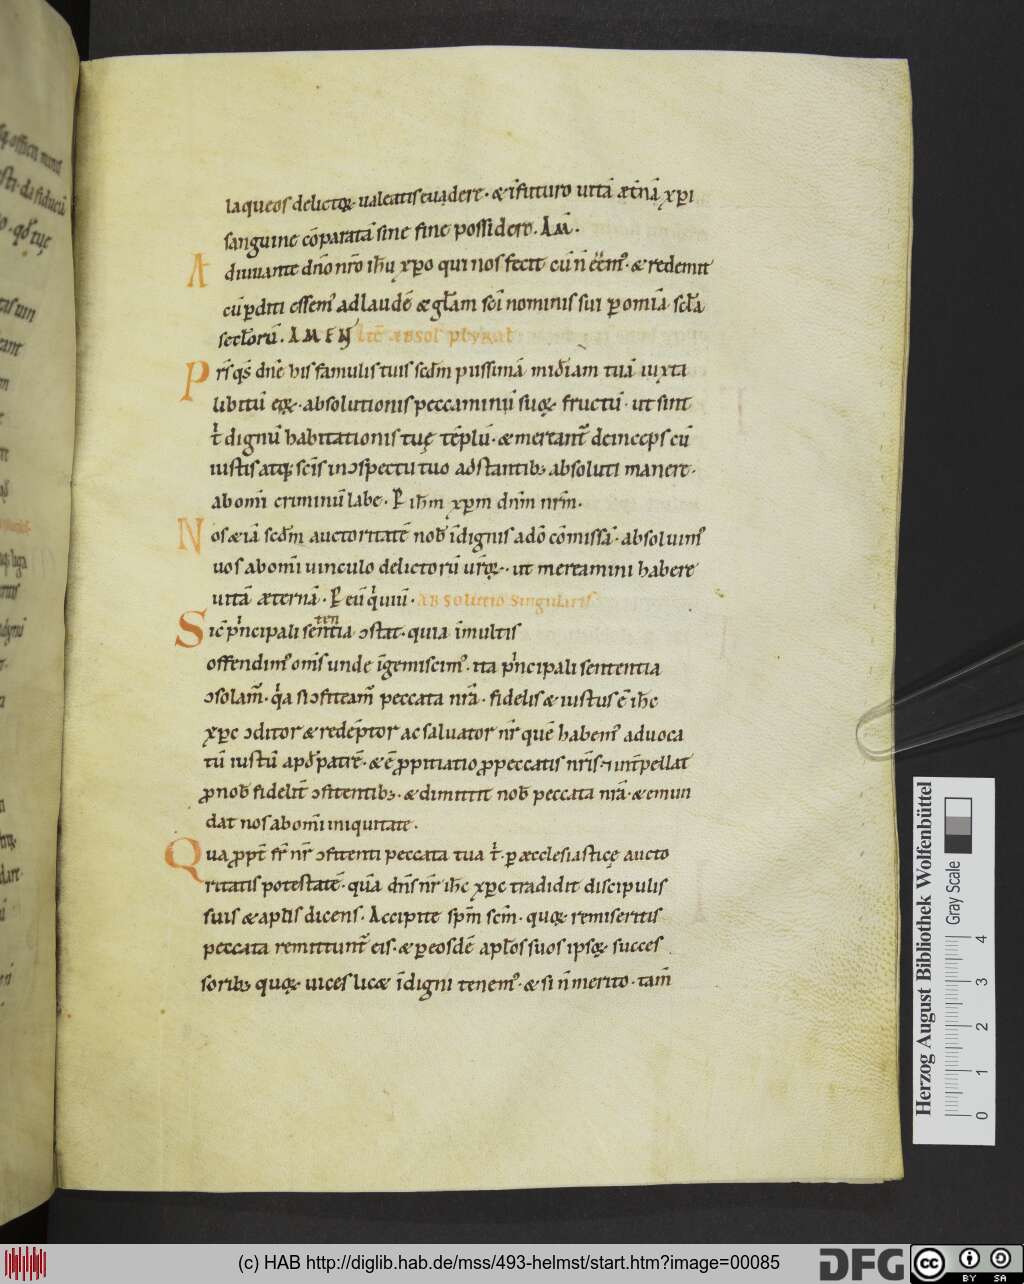 laqueos delictoꝝ ualeatis euadere · & ĩ futuro uitã æt̃nã xp̃i
sanguine cõparatã sine fine possidere. AM̃.
Adiuuante dño nr̃o ih̃u xp̃o qui nos fecit cũ ñ eẽmꝰ · & redemit
cũ ꝑditi essemꝰ ad laudẽ & gl̃am sc̃i nominis sui ꝑ omĩa sc̃la
sec̃lorũ. AMEN Itẽ absol̃ pluralˀ
Pr̃s qs̃ dñe his famulis tuis scd̃m piissimã mĩdiam tuã iuxta
libitũ eoꝝ · absolutionis peccaminũ suoꝝ fructũ · ut sint
t̾ dignũ habitationis tuę tẽplũ · & mereant̃ deinceps cũ
iustis atqꝫ sc̃is in ɔspectu tuo adstantibꝫ absoluti manere ·
ab omĩ criminũ labe · P ih̃m xp̃m dñm nr̃m.
Nos & iã scd̃m auctoritatẽ nob̃ ĩdignis a dõ cõmissã · absoluimꝰ
uos ab omĩ uinculo delictorũ ur̃oꝝ · ut mereamini habere
uitã æternã · P eũ q̾ uiũ · Absolutio singularis
Sic̃ p̾ncipali sentẽtia ɔstat · quia ĩ multis
ten
offendimꝰ om̃s unde ĩgemiscimꝰ · ita p̾ncipali sententia
ɔsolam̃ · q̾a si ɔfiteam̃ peccata nr̃a · fidelis & iustus ẽ ih̃c
xp̃c ɔditor & redẽptor ac saluator nr̃ quẽ habemꝰ aduoca
tũ iustũ apd̾ patrẽ · & ẽ ꝓpitiatio ꝓ peccatis nr̃is ⁊ int̃pellat
ꝓ nob̃ fidelit̃ ɔfitentibꝫ · & dimittit nob̃ peccata nr̃a · & emun
dat nos ab omĩ iniquitate ·
Qua ꝓpt̃ fr̃ nr̃ ɔfitenti peccata tua t̾ · ꝑ æcclesiasticę aucto
ritatis potestatẽ · quã dñs nr̃ ih̃c xp̃c tradidit discipulis
suis & apl̃is dicens. Accipite sp̃m scm̃ · quoꝝ remiseritis
peccata remittunt̃ eis · & ꝑ eosdẽ apl̃os suos ipsoꝝ succes
soribꝫ quoꝝ uices lic& ĩdigni tenemꝰ · & si ñ merito · tam̃
Herzog August Bibliothek Wolfenbüttel
Gray Scale
0 1 2 3 4
(c) HAB http://diglib.hab.de/mss/493-helmst/start.htm?image=00085
DFG
cc BY SA